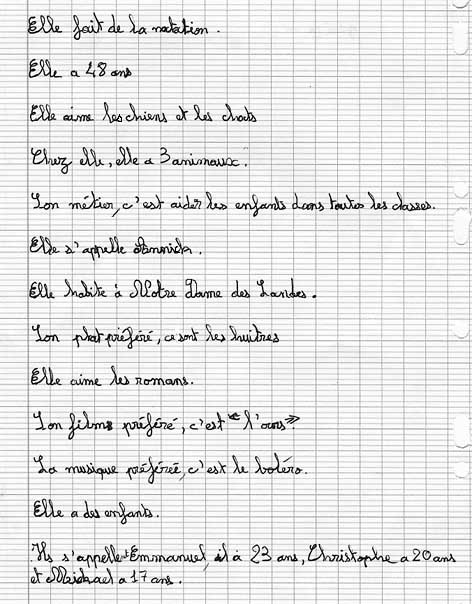 Elle fait de la natation.
Elle a 48 ans
Elle aime les chiens et les chats
Chez elle, elle a 3 animaux.
Son métier, c'est aider les enfants dans toutes les classes.
Elle s'appelle Annick.
Elle habite à Notre Dame des Landes.
Son plat préféré, ce sont les huitres
Elle aime les romans.
Son films préféré, c'est "l'ours".
Sa musique préférée, c'est le boléro.
Elle a des enfants.
Ils s'appelle Emmanuel, il à 23 ans, Christophe a 20 ans
et Meickael a 17 ans.